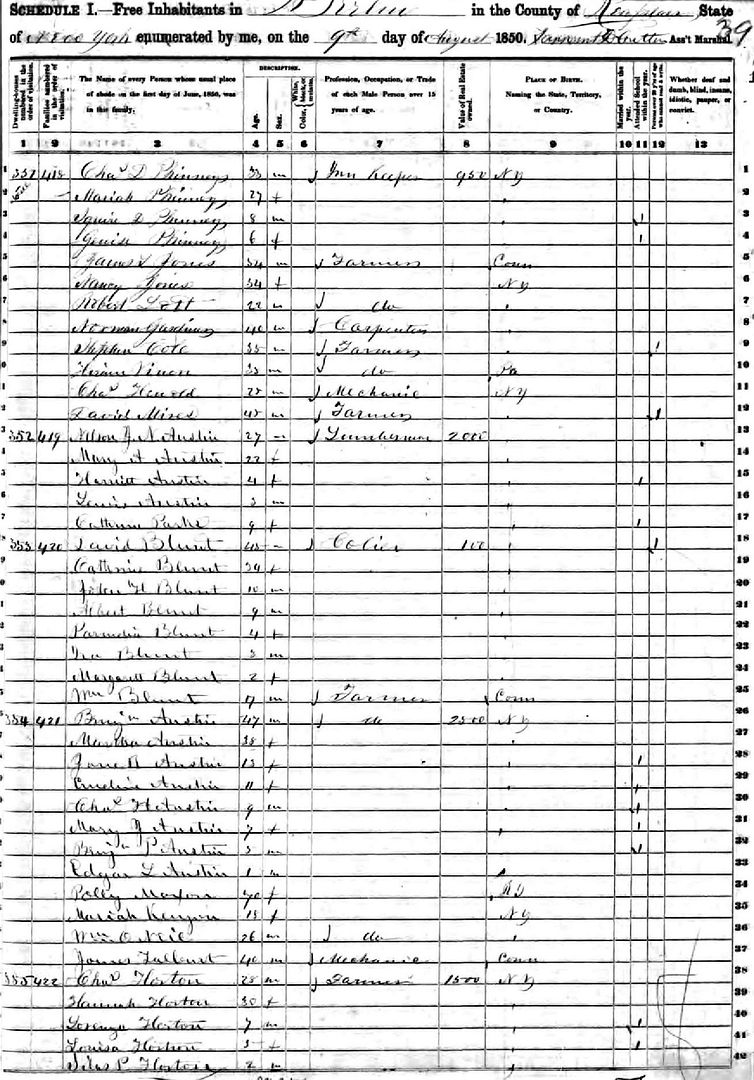 SCHEDULE I.—Free Inhabitants in in the County of State
of New York enumerated by me, on the 9th day of August 1850. Ass't Marshal.
39
Dwelling-houses numbered in the order of visitation.
Families numbered in the order of visitation.
The Name of every Person whose usual place of abode on the first day of June, 1850, was in this family.
DESCRIPTION.
Age.
Sex.
Color, White, black, or mulatto.
Profession, Occupation, or Trade of each Male Person over 15 years of age.
Value of Real Estate owned.
PLACE OF BIRTH. Naming the State, Territory, or Country.
Married within the year.
Attended School within the year.
Persons over 20 y'rs of age who cannot read & write.
Whether deaf and dumb, blind, insane, idiotic, pauper, or convict.
1 2 3 4 5 6 7 8 9 10 11 12 13
1 418 Chas D Phinney 33 m Inn Keeper 950 NY 1
2 Mariah Phinney 27 f 2
3 Squire D Phinney 8 m 3
4 Phinney 6 f 4
5 James Jones 54 m Farmer Conn 5
6 Nancy Jones 54 f NY 6
7 Robert Lott 22 m do 7
8 Norman Gardiner 40 m Carpenter 8
9 Stephen Cole 35 m Farmer 9
10 Hiram 33 m do Pa 10
11 Chas 28 m Mechanic NY 11
12 David 42 m Farmer 12
13 352 419 Nelson Austin 27 Lumberman 2000 13
14 Mary A Austin 22 f 14
15 Harriett Austin 4 f 15
16 Lewis Austin 3 m 16
17 Catherine Parks 9 f 17
18 353 420 David Blunt 45 Colier 100 18
19 Catherine Blunt 34 f 19
20 John H Blunt 10 m 20
21 Albert Blunt 9 m 21
22 Blunt 4 f 22
23 Ira Blunt 3 m 23
24 Margarett Blunt 2 f 24
25 Wm Blunt m Farmer Conn 25
26 354 421 Benjn Austin 47 m do 2500 NY 26
27 Martha Austin 38 f 27
28 Jane Austin 13 f 28
29 Emeline Austin 11 f 29
30 Chas H Austin 9 m 30
31 Mary Austin 7 f 31
32 Benjn P Austin 5 m 32
33 Edgar L Austin 1 m 33
34 Polly Maxon 70 f 34
35 Mariah Kenyon 18 f NY 35
36 Wm O Neil 26 m do 36
37 James 40 m Mechanic Conn 37
38 355 422 Chas Horton 28 m Farmer 1500 NY 38
39 Hannah Horton 30 f 39
40 Lorenzo Horton 7 m 40
41 Louisa Horton 5 f 41
42 Silas P Horton 2 m 42